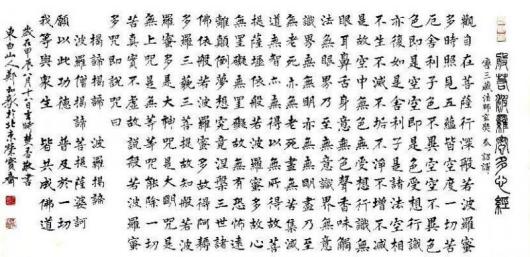 般若波羅蜜多心經
唐三藏法師玄奘奉詔譯
觀自在菩薩行深般若波羅蜜
多時照見五蘊皆空度一切苦
厄舍利子色不異空空不異色
色即是空空即是色受想行識
亦復如是舍利子是諸法空相
不生不滅不垢不淨不增不減
是故空中無色無受想行識無
眼耳鼻舌身意無色聲香味觸
法無眼界乃至無意
識界無無明亦無無明盡乃至
無老死亦無老死盡無苦集滅
道無智亦無得以無所得故菩
提薩埵依般若波羅蜜多故心
無罣礙無罣礙故無有恐怖遠
離顛倒夢想究竟涅槃三世諸
佛依般若波羅蜜多故得阿耨
多羅三藐三菩提故知般若波
羅蜜多是大神咒是大明咒是
無上咒是無等等咒能除一切
苦真實不虛故說般若波羅蜜
多咒即說咒曰
揭諦揭諦 波羅揭諦
波羅僧揭諦 菩提薩婆訶
願以此功德 普及於一切
我等與眾生 皆共成佛道
歲在甲辰八月十八日吉時焚香敬書
東白山人鄭和敬於北京榮寶齋